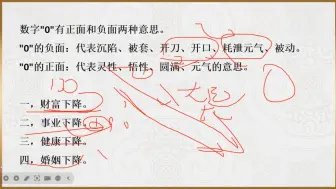 数字"0"有正面和负面两种意思。
"0"的负面：代表沉陷、被套、开刀、开口、耗泄元气，被动。
"0"的正面：代表灵性、悟性、圆满、元气的意思。
一，财富下降。
二，事业下降。
三，健康下降。
四，婚姻下降。